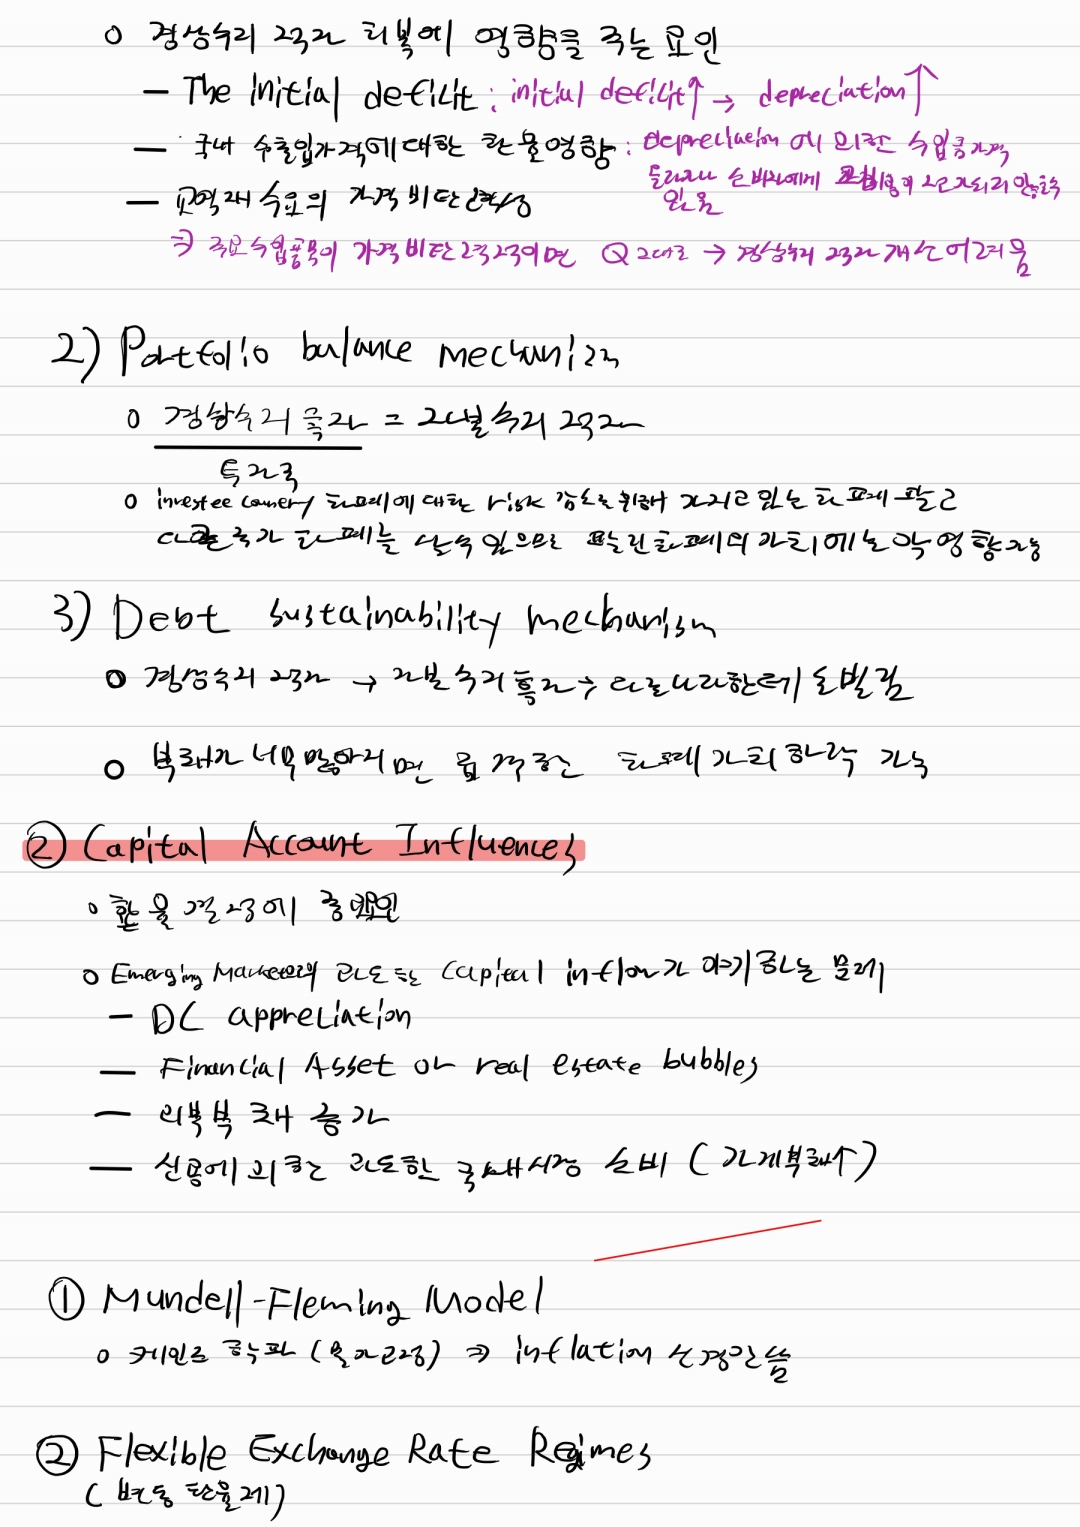 o 경상수지 적자 회복에 영향을 주는 요인
- The initial deficit : initial deficit↑ → depreciation↑
- 국내 수출입가격에 대한 환율영향 : depreciation에 의한 수입품가격
올라가나 소비자에게 전가되지 않을수
있음
- 교역재 수요의 가격 비탄력성
⇒ 주요수입품목이 가격비탄력적이면 Q 그대로 → 경상수지 적자 개선 어려움
2) Portfolio balance mechanism
o 경상수지 흑자 = 자본수지 적자
투자국
o investee country 화폐에 대한 risk 감소를 위해 가지고 있는 화폐 팔고
다른 국가 화폐를 살 수 있으므로 팔린 화폐의 가치에는 악영향 가능
3) Debt sustainability mechanism
o 경상수지 적자 → 자본수지 흑자 → 다른나라한테 돈빌림
o 부채가 너무 많아지면 급격한 화폐가치하락 가능
② Capital Account Influences
o 환율 결정에 중요요인
o Emerging Market으로의 과도한 Capital inflow가 야기하는 문제
- DC appreciation
- Financial Asset or real estate bubbles
- 외부부채 증가
- 신용에 의한 과도한 국내시장 소비 (가계부채↑)
① Mundell-Fleming Model
o 케인즈 학파 (물가고정) ⇒ inflation 신경안씀
② Flexible Exchange Rate Regimes
(변동환율제)